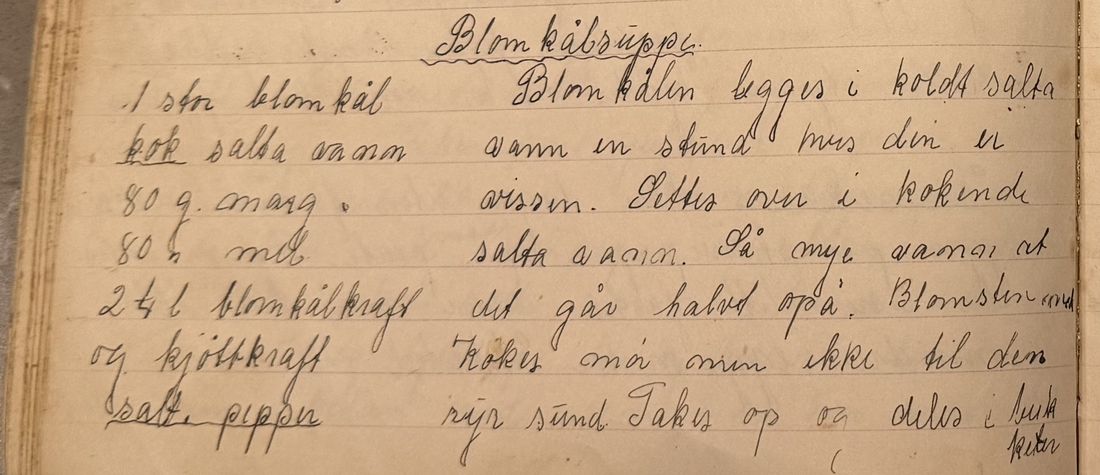 Blomkålsuppe.
1 stor blomkål
kok salta vann
80 g. marg.
80 " mel
2 1/4 l blomkålkraft
og kjøttkraft
salt. pepper
Blomkålen legges i koldt salta
vann en stund hvis din er
vissen. Settes over i kokende
salta vann. Så mye vann at
det går halvt opå. Blomsten ned
Kokes mør men ikke til den
ryr sund. Takes op og deles i buk
keter